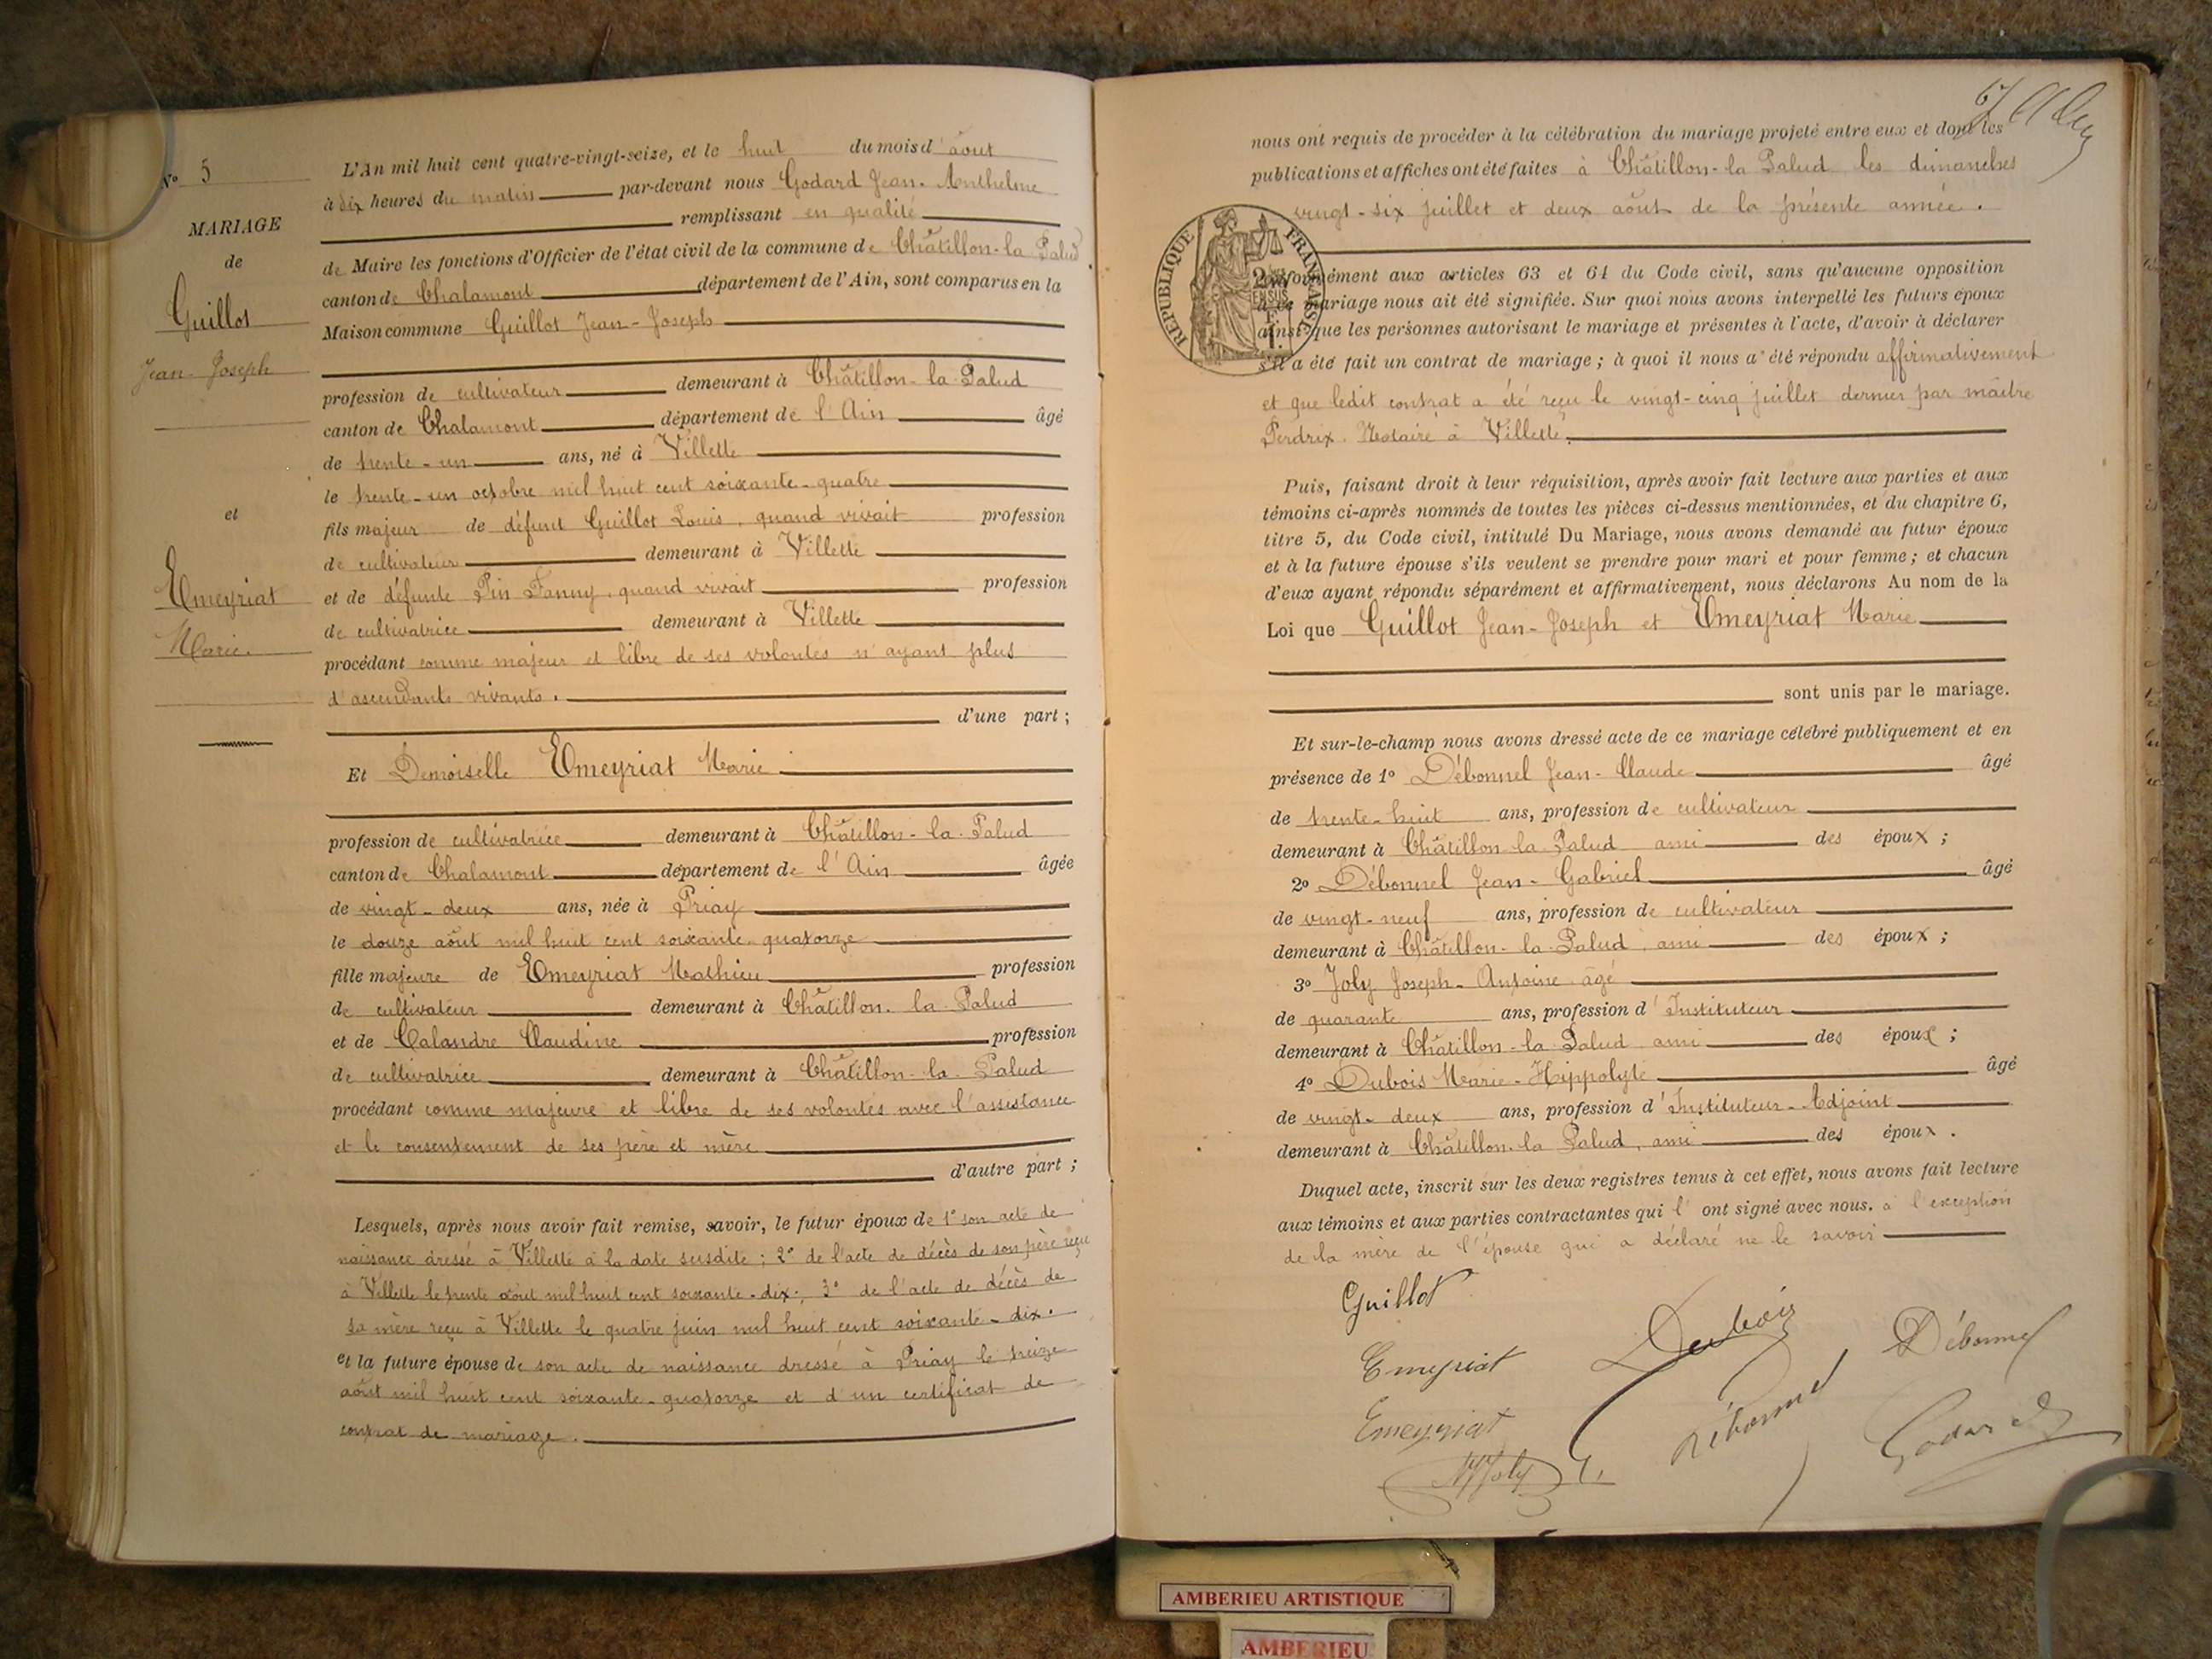 N° 5
MARIAGE
de
Guillot
Jean-Joseph
et
Emeyriat
Marie.
L'An mil huit cent quatre-vingt-seize, et le huit du mois d'août
à dix heures du matin par-devant nous Godard Jean-Anthelme
remplissant en qualité
de Maire les fonctions d'Officier de l'état civil de la commune de Châtillon-la Palud
canton de Chalamont département de l'Ain, sont comparus en la
Maison commune Guillot Jean-Joseph
profession de cultivateur demeurant à Châtillon-la-Palud
canton de Chalamont département de l'Ain âgé
de trente-un ans, né à Villette
le trente-un octobre mil huit cent soixante-quatre
fils majeur de défunt Guillot Louis, quand vivait profession
de cultivateur demeurant à Villette
et de défunte Pin Fanny, quand vivait profession
de cultivatrice demeurant à Villette
procédant comme majeur et libre de ses volontés n'ayant plus
d'ascendants vivants.
d'une part ;
Et Demoiselle Emeyriat Marie
profession de cultivatrice demeurant à Châtillon-la-Palud
canton de Chalamont département de l'Ain âgée
de vingt-deux ans, née à Priay
le douze août mil huit cent soixante-quatorze
fille majeure de Emeyriat Mathieu profession
de cultivateur demeurant à Châtillon-la-Palud
et de Calandre Claudine profession
de cultivatrice demeurant à Châtillon-la-Palud
procédant comme majeure et libre de ses volontés avec l'assistance
et le consentement de ses père et mère
d'autre part ;
Lesquels, après nous avoir fait remise, savoir, le futur époux de 1° son acte de
naissance dressé à Villette à la date susdite ; 2° de l'acte de décès de son père reçu
à Villette le trente août mil huit cent soixante-dix ; 3° de l'acte de décès de
sa mère reçu à Villette le quatre juin mil huit cent soixante-dix.
et la future épouse de son acte de naissance dressé à Priay le treize
août mil huit cent soixante-quatorze et d'un certificat de
contrat de mariage.
nous ont requis de procéder à la célébration du mariage projeté entre eux et dont les
publications et affiches ont été faites à Châtillon-la Palud les dimanches
vingt-six juillet et deux août de la présente année.
RÉPUBLIQUE FRANÇAISE
conformément aux articles 63 et 64 du Code civil, sans qu'aucune opposition
à ce mariage nous ait été signifiée. Sur quoi nous avons interpellé les futurs époux
ainsi que les personnes autorisant le mariage et présentes à l'acte, d'avoir à déclarer
s'il a été fait un contrat de mariage ; à quoi il nous a été répondu affirmativement
et que ledit contrat a été reçu le vingt-cinq juillet dernier par maître
Perdrix, Notaire à Villette.
Puis, faisant droit à leur réquisition, après avoir fait lecture aux parties et aux
témoins ci-après nommés de toutes les pièces ci-dessus mentionnées, et du chapitre 6,
titre 5, du Code civil, intitulé Du Mariage, nous avons demandé au futur époux
et à la future épouse s'ils veulent se prendre pour mari et pour femme ; et chacun
d'eux ayant répondu séparément et affirmativement, nous déclarons Au nom de la
Loi que Guillot Jean-Joseph et Emeyriat Marie
sont unis par le mariage.
Et sur-le-champ nous avons dressé acte de ce mariage célébré publiquement et en
présence de 1° Débonnel Jean-Claude âgé
de trente-huit ans, profession de cultivateur
demeurant à Châtillon-la-Palud ami des époux ;
2° Débonnel Jean-Gabriel âgé
de vingt-neuf ans, profession de cultivateur
demeurant à Châtillon-la-Palud, ami des époux ;
3° Joly Joseph-Antoine âgé
de quarante ans, profession d'Instituteur
demeurant à Châtillon-la-Palud ami des époux ;
4° Dubois Marie-Hyppolyte âgé
de vingt-deux ans, profession d'Instituteur-Adjoint
demeurant à Châtillon-la Palud, ami des époux.
Duquel acte, inscrit sur les deux registres tenus à cet effet, nous avons fait lecture
aux témoins et aux parties contractantes qui l'ont signé avec nous. à l'exception
de la mère de l'épouse qui a déclaré ne le savoir
Guillot
Dubois
Débonnel
Emeyriat
Débonnel
Emeyriat
Godard
Joly
AMBERIEU ARTISTIQUE
AMBERIEU